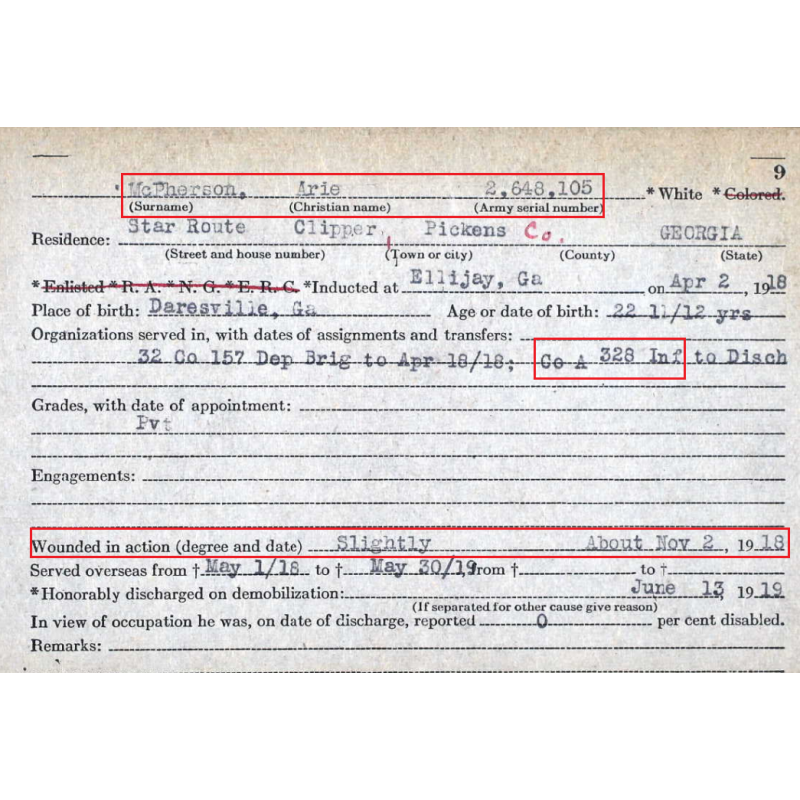 9
McPherson, Arie 2,648,105 * White * Colored.
(Surname) (Christian name) (Army serial number)
Residence: Star Route Clipper, Pickens Co. GEORGIA
(Street and house number) (Town or city) (County) (State)
* Enlisted * R. A. * N. G. * E. R. C. *Inducted at Ellijay, Ga on Apr 2, 1918
Place of birth: Daresville, Ga Age or date of birth: 22 11/12 yrs
Organizations served in, with dates of assignments and transfers:
32 Co 157 Dep Brig to Apr 18/18; Co A 328 Inf to Disch
Grades, with date of appointment:
Pvt
Engagements:
Wounded in action (degree and date) Slightly About Nov 2, 1918
Served overseas from † May 1/18 to † May 30/19 from † to †
* Honorably discharged on demobilization: June 13, 1919
(If separated for other cause give reason)
In view of occupation he was, on date of discharge, reported 0 per cent disabled.
Remarks: